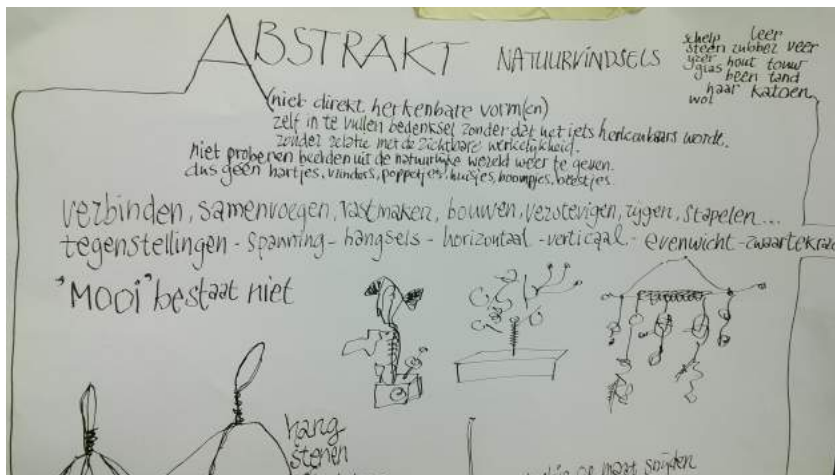 ABSTRAKT NATUURVINDSELS
schelp leer
steen rubber veer
yzer hout touw
glas been tand
haar katoen
wol
(niet direkt herkenbare vorm(en)
zelf in te vullen bedenksel zonder dat het iets herkenbaars wordt.
zonder relatie met de zichtbare werkelijkheid.
niet proberen beelden uit de natuurlijke wereld weer te geven.
dus géén hartjes, vlinders, poppetjes, huisjes, boompjes, beestjes.
verbinden, samenvoegen, vastmaken, bouwen, verstevigen, rijgen, stapelen...
tegenstellingen - spanning - hangsels - horizontaal - verticaal - evenwicht - zwaartekrac
"MOOI" bestaat niet
hang
stenen
op maat snijden